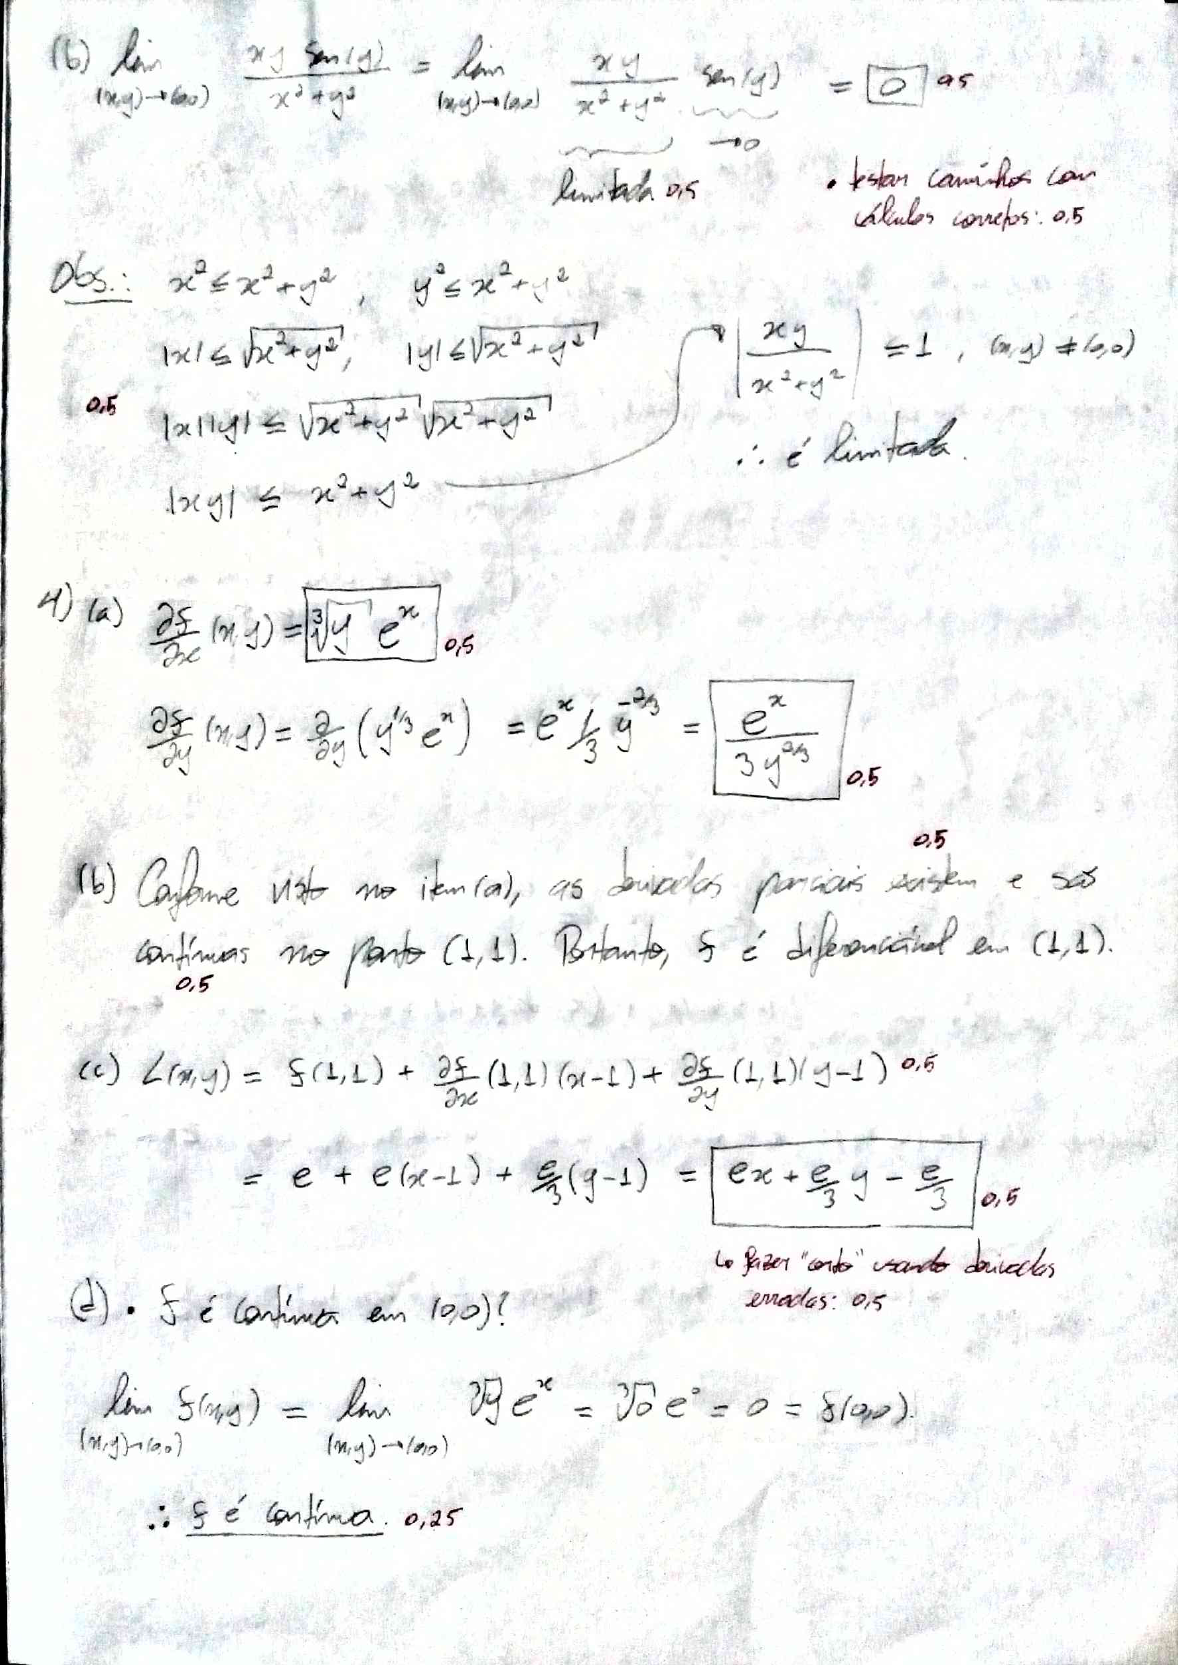 (b) lim (x,y)→(0,0) xy sen(y) / x²+y² = lim (x,y)→(0,0) xy / x²+y² sen(y) = 0 0,5
→0
limitada 0,5
• testar caminhos com
cálculos corretos: 0,5
Obs.: x² ≤ x²+y² , y² ≤ x²+y²
|x| ≤ √x²+y², |y| ≤ √x²+y²
|xy / x²+y²| ≤ 1 , (x,y) ≠ (0,0)
0,5
|x||y| ≤ √x²+y² √x²+y²
∴ é limitada.
|xy| ≤ x²+y²
4) (a) ∂f/∂x (x,y) = ∛y e^x 0,5
∂f/∂y (x,y) = ∂/∂y (y^1/3 e^x) = e^x 1/3 y^-2/3 = e^x / 3y^2/3 0,5
0,5
(b) Conforme visto no item (a), as derivadas parciais existem e são
contínuas no ponto (1,1). Portanto, f é diferenciável em (1,1).
0,5
(c) L(x,y) = f(1,1) + ∂f/∂x (1,1)(x-1) + ∂f/∂y (1,1)(y-1) 0,5
= e + e(x-1) + e/3 (y-1) = ex + e/3 y - e/3 0,5
↳ fazer "certo" usando derivadas
erradas: 0,5
(d) • f é contínua em (0,0)?
lim (x,y)→(0,0) f(x,y) = lim (x,y)→(0,0) ∛y e^x = ∛0 e^0 = 0 = f(0,0).
∴ f é contínua. 0,25